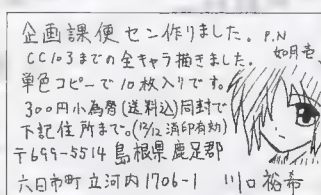 企画課便セン作りました。P.N
如月壱
CC103までの全キャラ描きました。
単色コピーで10枚入りです。
300円小為替(送料込)同封で
下記住所まで。(12/12消印有効)
〒699-5514 島根県鹿足郡
六日市町立河内1706-1 川口裕希